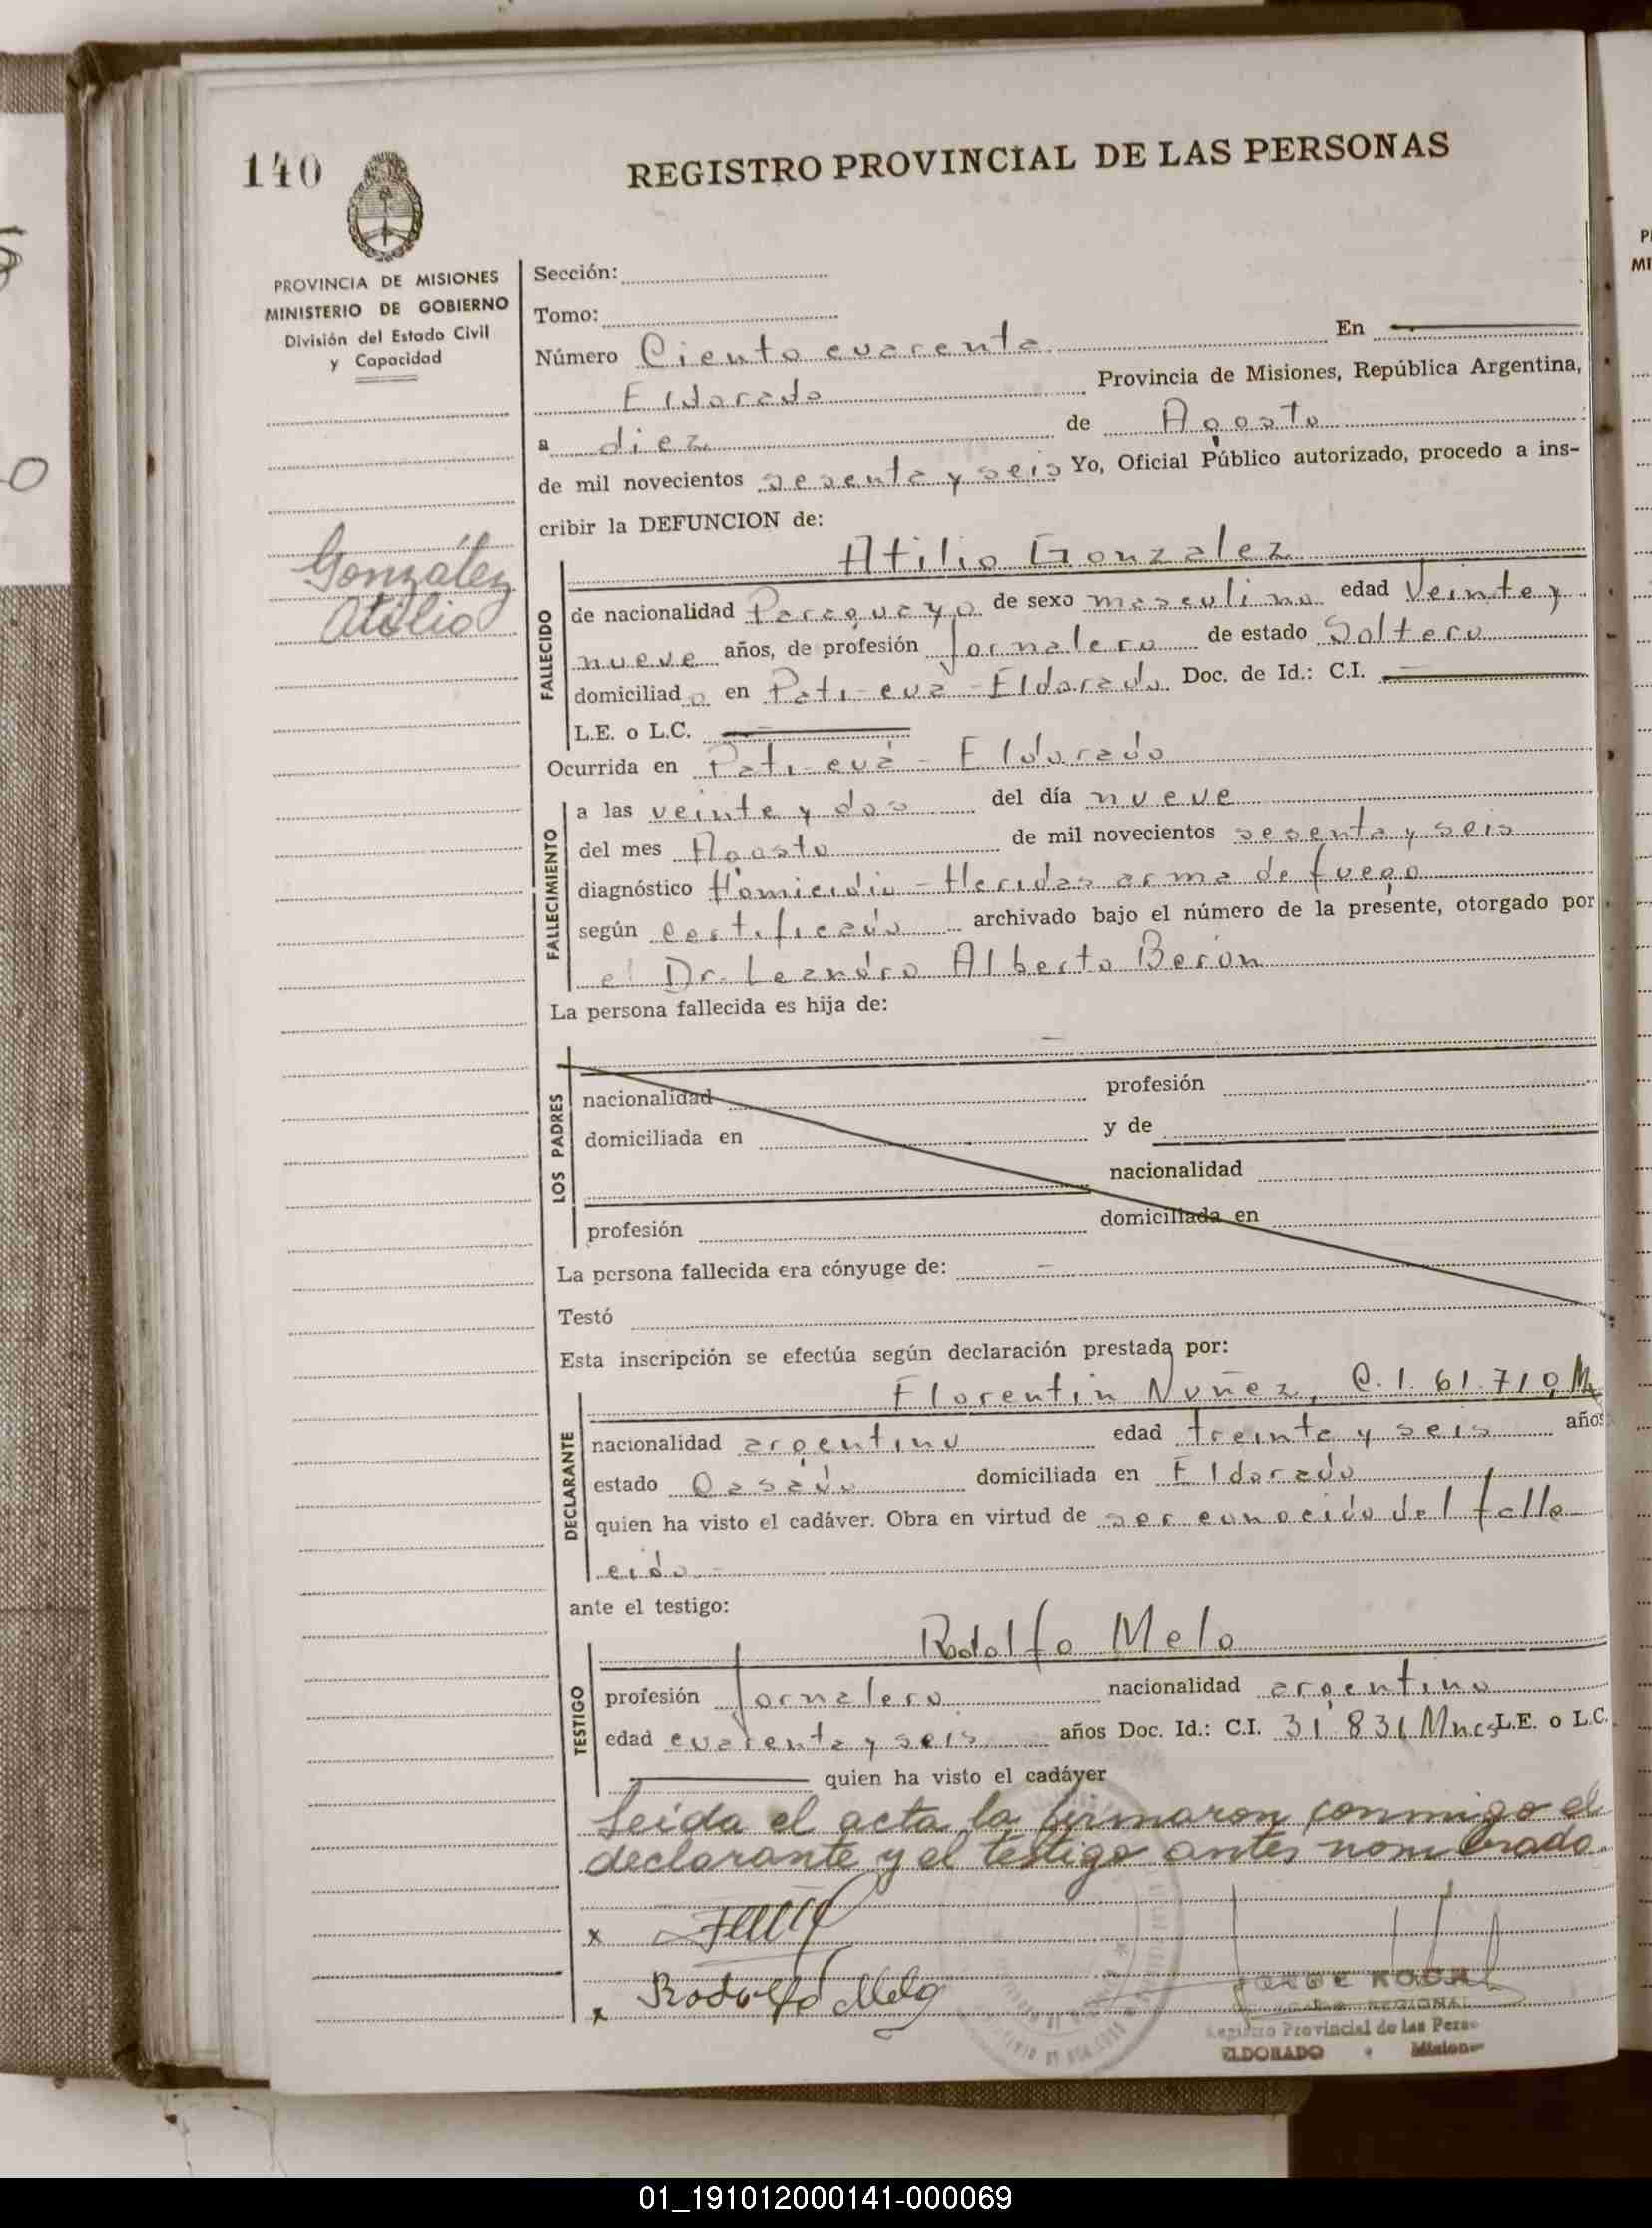 140
REGISTRO PROVINCIAL DE LAS PERSONAS
PROVINCIA DE MISIONES
MINISTERIO DE GOBIERNO
División del Estado Civil
y Capacidad
González
Atilio
Sección:
Tomo:
Número Ciento cuarenta En
Eldorado Provincia de Misiones, República Argentina,
a diez de Agosto
de mil novecientos sesenta y seis Yo, Oficial Público autorizado, procedo a ins-
cribir la DEFUNCION de:
FALLECIDO
Atilio Gonzalez
de nacionalidad Paraguayo de sexo masculino edad Veinte y
nueve años, de profesión Jornalero de estado Soltero
domiciliado en Pati-cuá-Eldorado Doc. de Id.: C.I.
L.E. o L.C.
Ocurrida en Pati-cuá - Eldorado
FALLECIMIENTO
a las veinte y dos del día nueve
del mes Agosto de mil novecientos sesenta y seis
diagnóstico Homicidio - Heridas arma de fuego
según certificado archivado bajo el número de la presente, otorgado por
el Dr. Leandro Alberto Berón
La persona fallecida es hija de:
LOS PADRES
nacionalidad profesión
domiciliada en y de
nacionalidad
profesión domiciliada en
La persona fallecida era cónyuge de: -
Testó
Esta inscripción se efectúa según declaración prestada por:
DECLARANTE
Florentin Nuñez, C.I. 61.710, M
nacionalidad argentino edad treinta y seis años
estado Casado domiciliada en Eldorado
quien ha visto el cadáver. Obra en virtud de ser conocido del falle
cido -
ante el testigo:
TESTIGO
Rodolfo Melo
profesión Jornalero nacionalidad argentino
edad cuarenta y seis años Doc. Id.: C.I. 31.831 Mnes L.E. o L.C.
quien ha visto el cadáver
Leida el acta la firmaron conmigo el
declarante y el testigo antes nombrado.
x
x Rodolfo Melo
JORGE
REGIONAL
Registro Provincial de las Perso
ELDORADO - Misiones
PR
MI
01_191012000141-000069